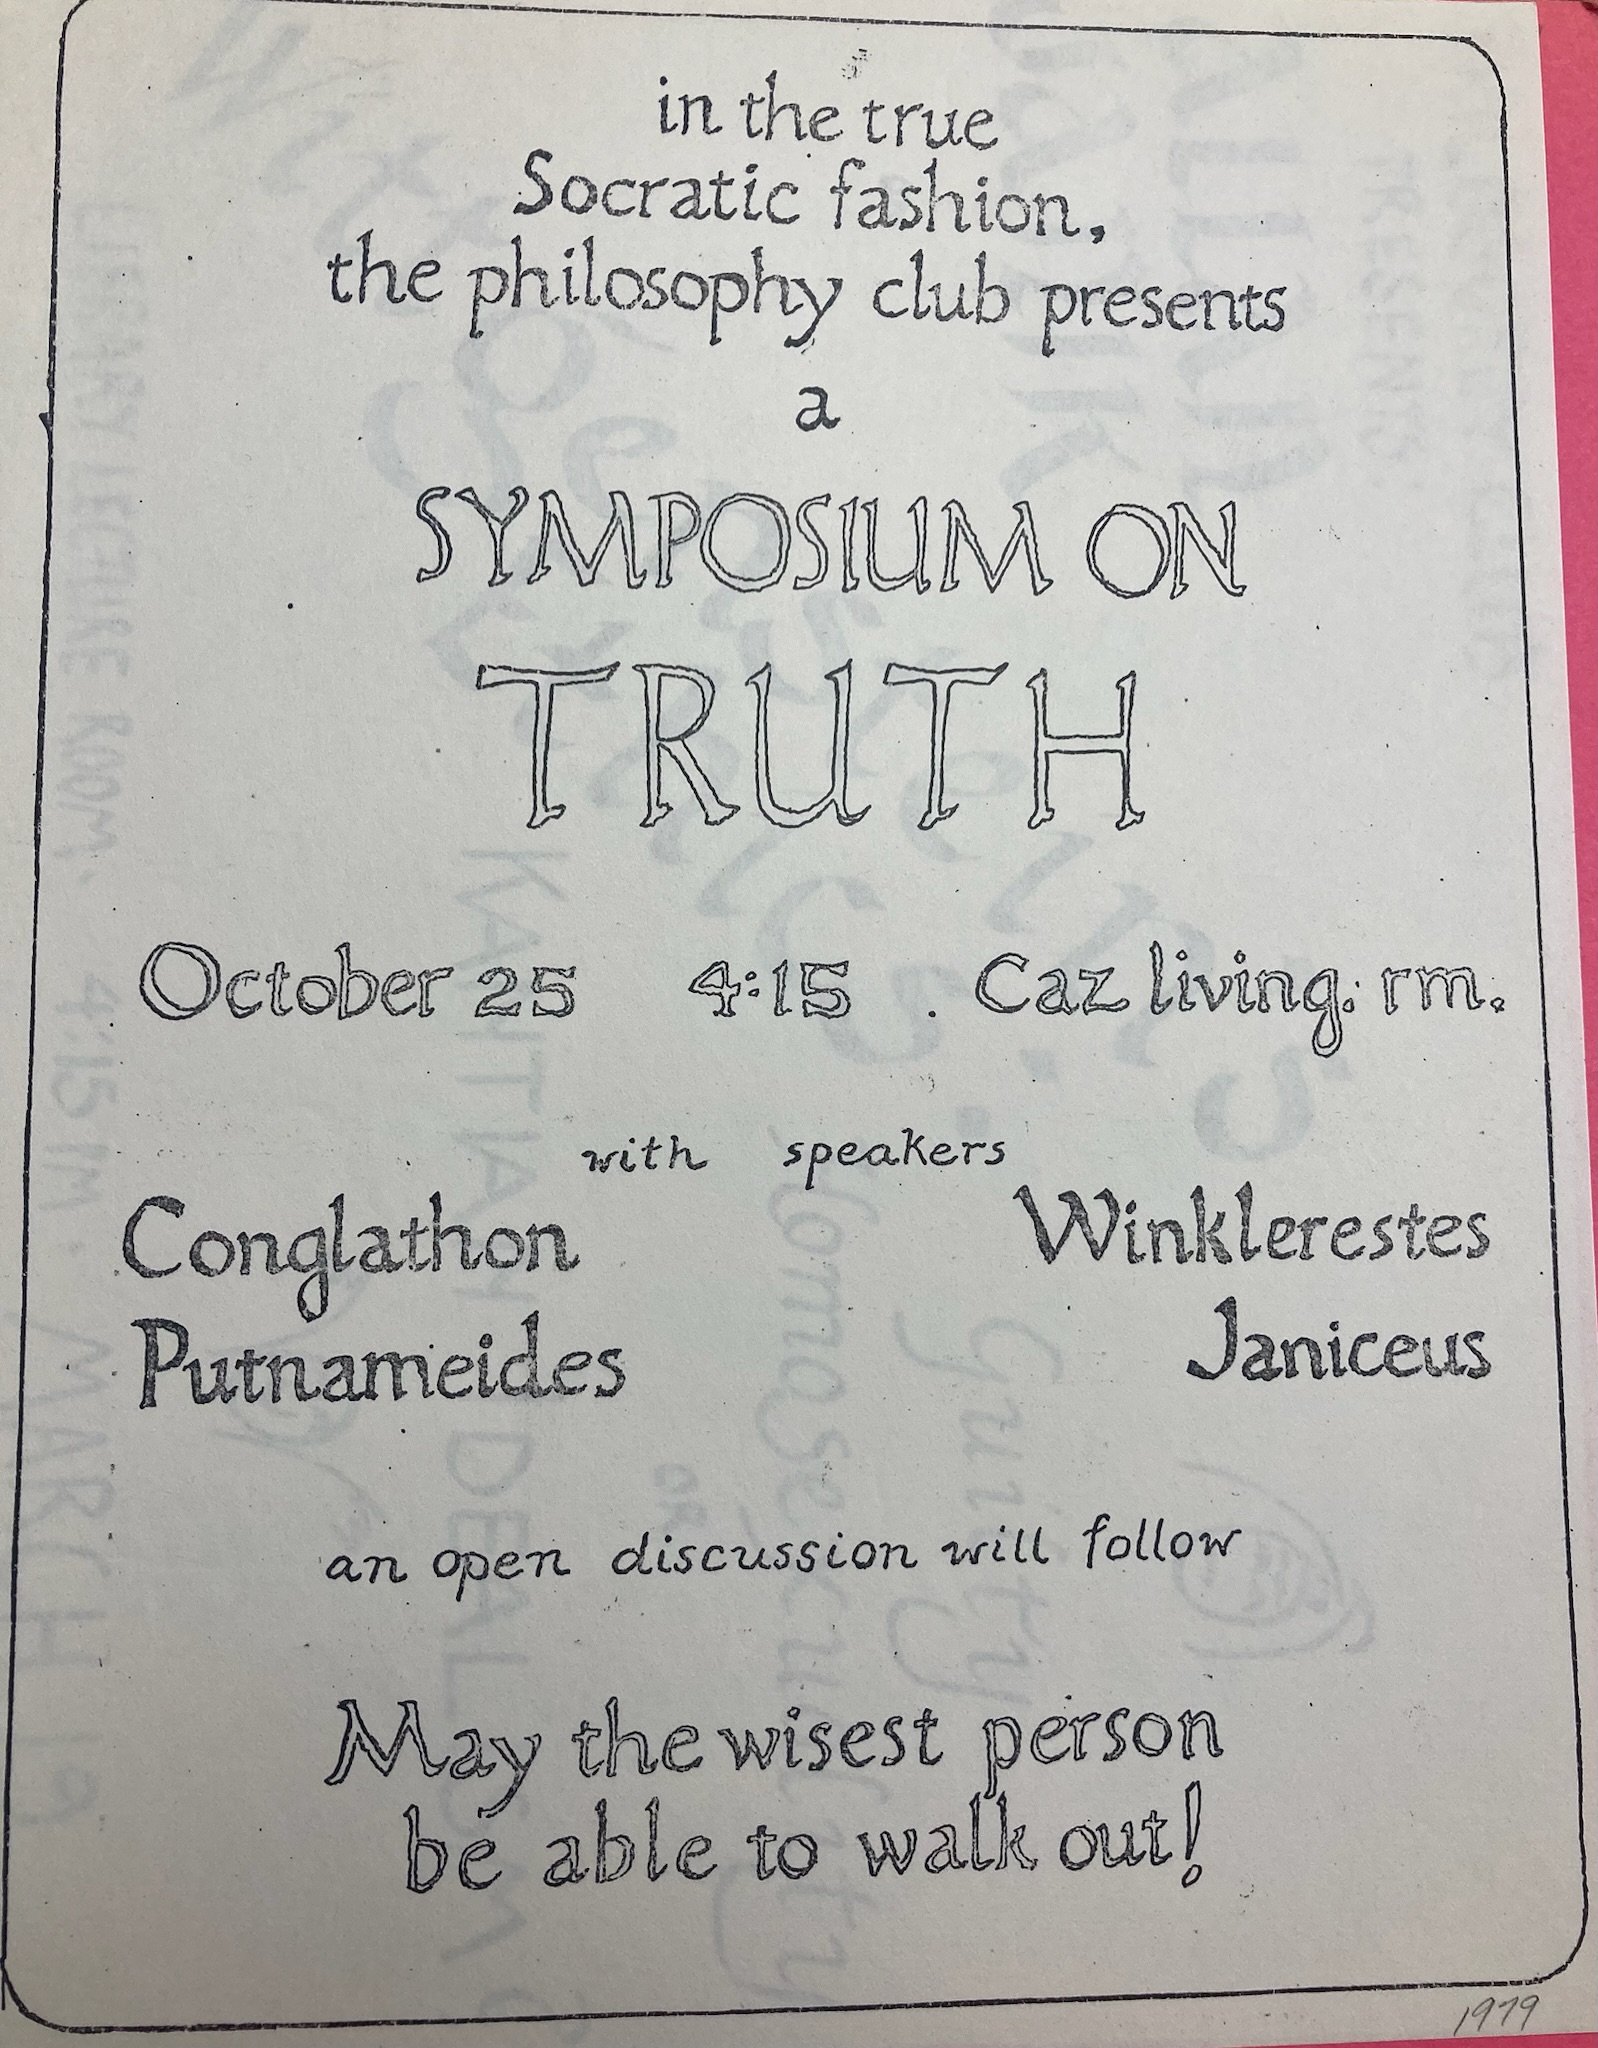 in the true
Socratic fashion,
the philosophy club presents
a
SYMPOSIUM ON
TRUTH
October 25 4:15 . Caz living. rm.
with speakers
Conglathon Winklerestes
Putnameides Janiceus
an open discussion will follow
May the wisest person
be able to walk out!
1979